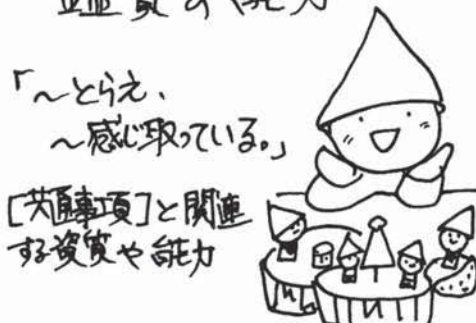 資質や能力
「~とらえ、
~感じ取っている。」
[共通事項]と関連
する資質や能力